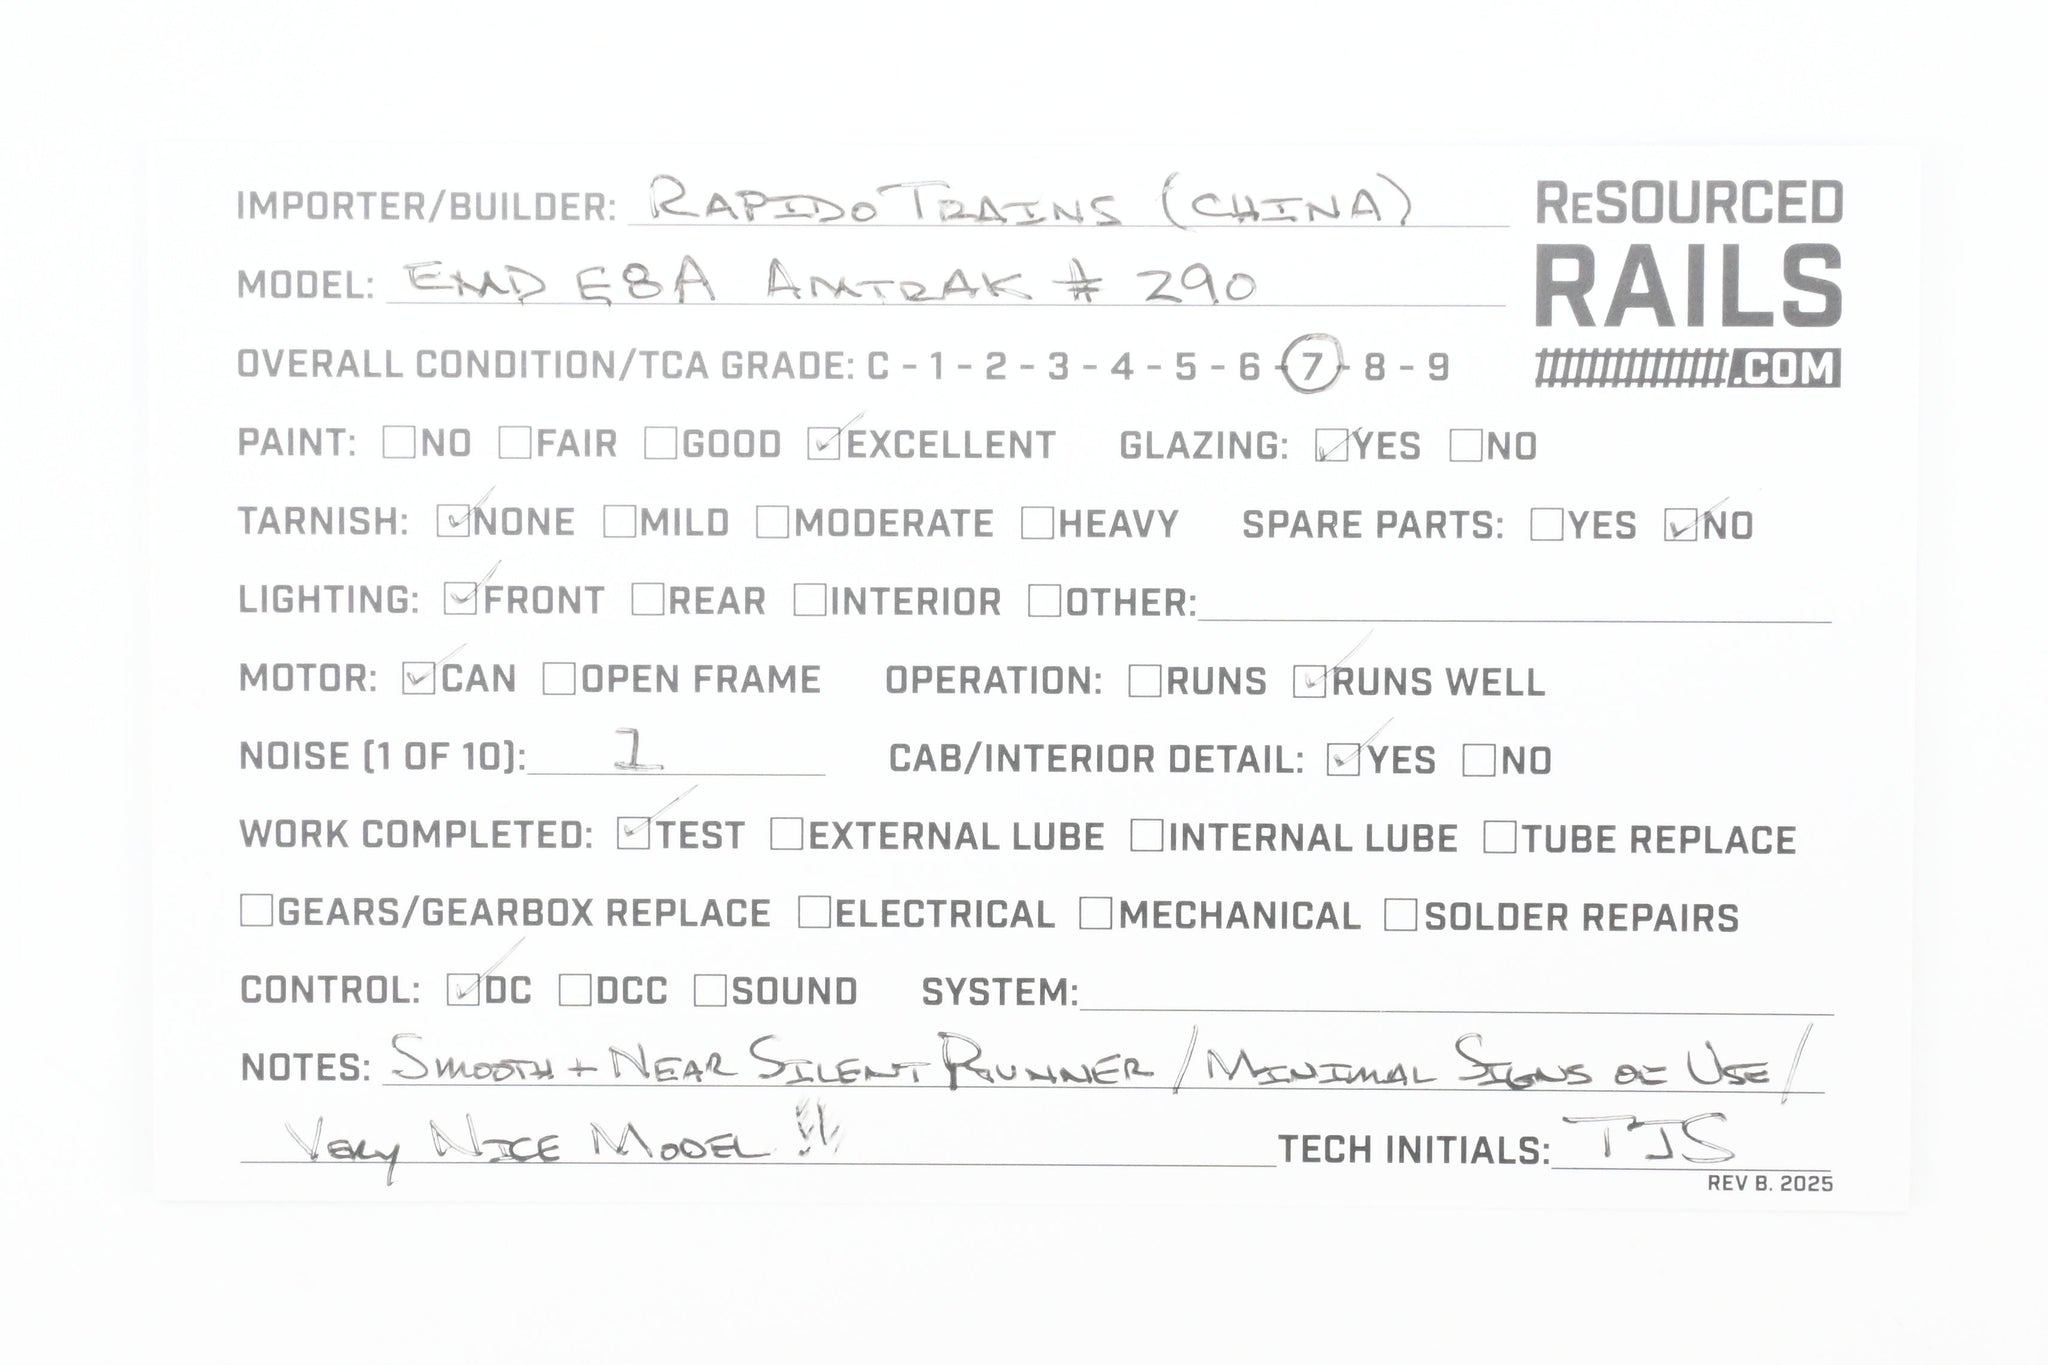 IMPORTER/BUILDER: RAPIDO TRAINS (CHINA)
ReSOURCED
RAILS
.COM
MODEL: EMD E8A AMTRAK # 290
OVERALL CONDITION/TCA GRADE: C - 1 - 2 - 3 - 4 - 5 - 6 - 7 - 8 - 9
PAINT: ☐NO ☐FAIR ☐GOOD ☑EXCELLENT GLAZING: ☑YES ☐NO
TARNISH: ☑NONE ☐MILD ☐MODERATE ☐HEAVY SPARE PARTS: ☐YES ☑NO
LIGHTING: ☑FRONT ☐REAR ☐INTERIOR ☐OTHER:
MOTOR: ☑CAN ☐OPEN FRAME OPERATION: ☐RUNS ☑RUNS WELL
NOISE (1 OF 10): 1 CAB/INTERIOR DETAIL: ☑YES ☐NO
WORK COMPLETED: ☑TEST ☐EXTERNAL LUBE ☐INTERNAL LUBE ☐TUBE REPLACE
☐GEARS/GEARBOX REPLACE ☐ELECTRICAL ☐MECHANICAL ☐SOLDER REPAIRS
CONTROL: ☑DC ☐DCC ☐SOUND SYSTEM:
NOTES: SMOOTH + NEAR SILENT RUNNER / MINIMAL SIGNS OF USE /
VERY NICE MODEL !! TECH INITIALS: TJS
REV B. 2025